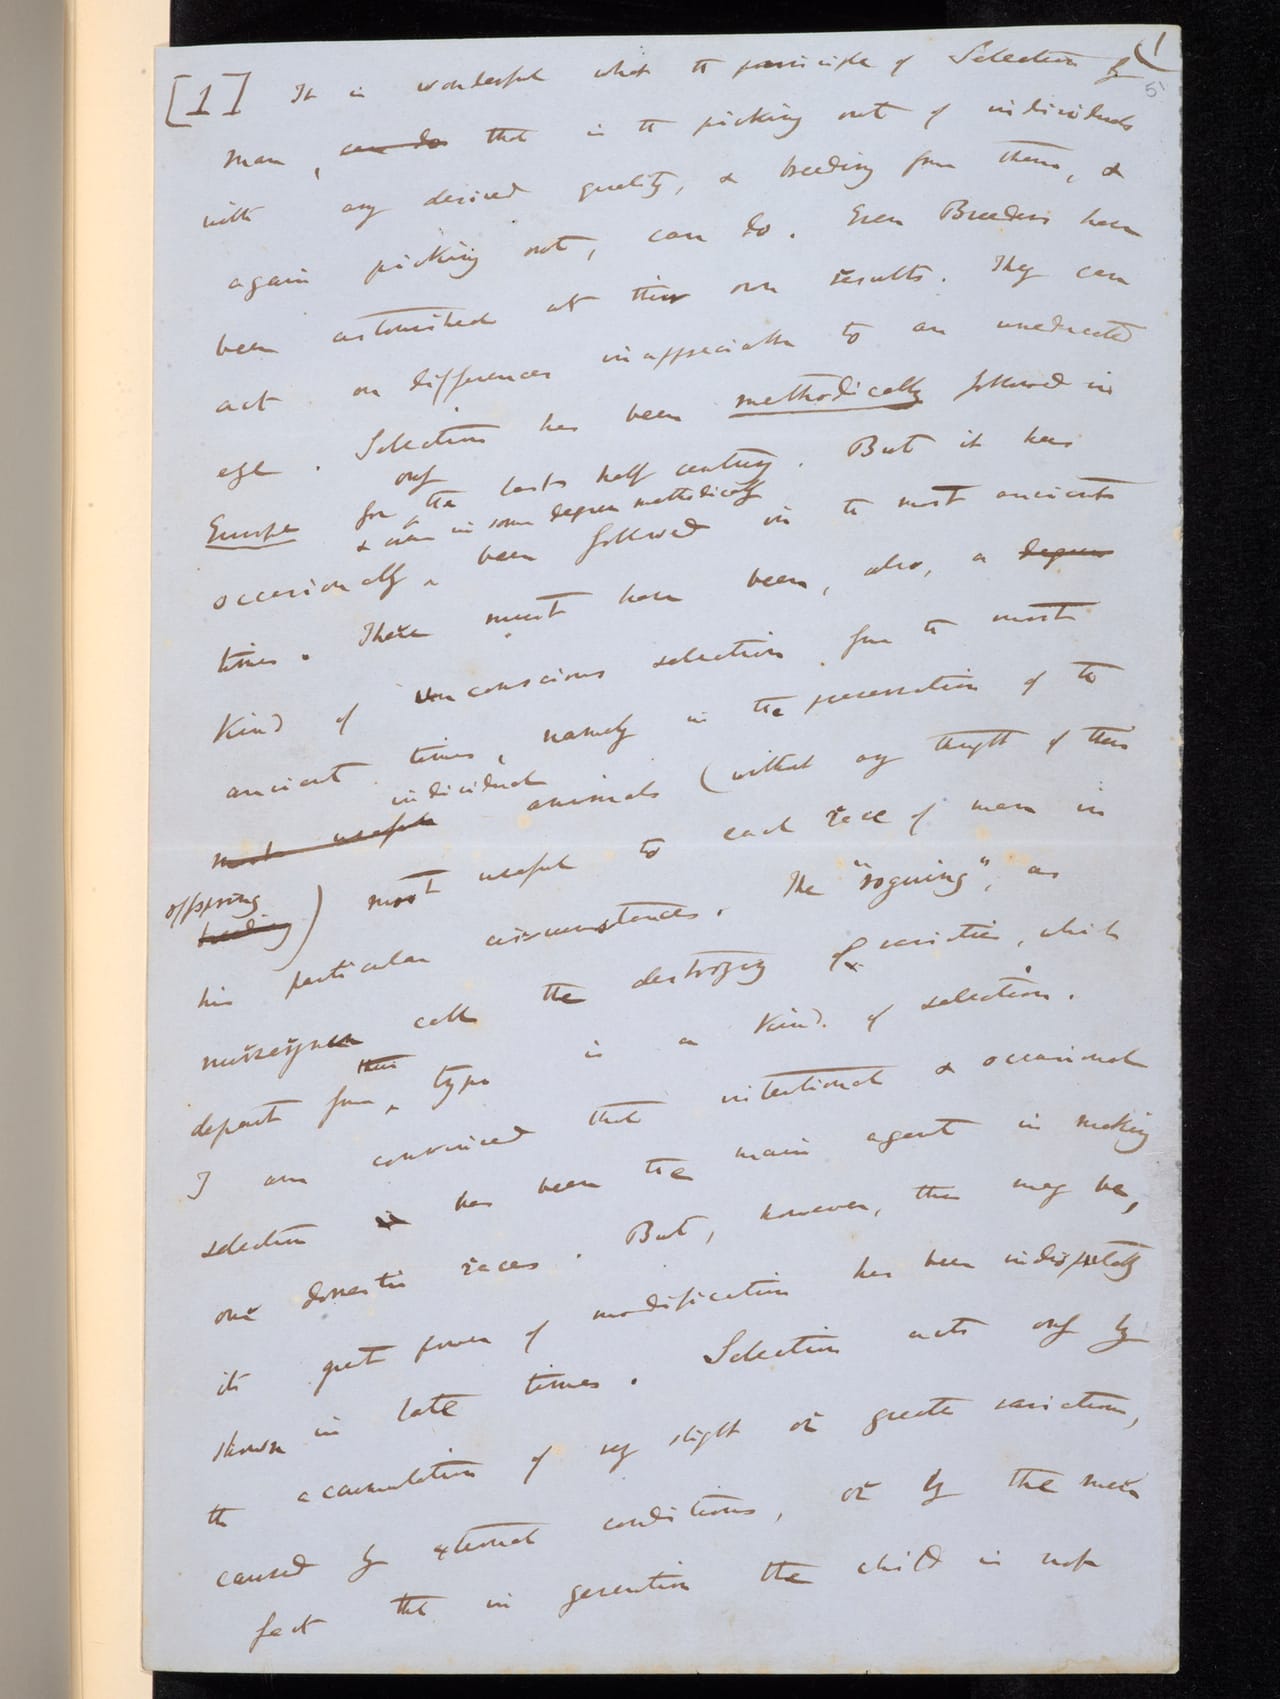 1
5
[1] It is wonderful what the principle of Selection by
man, can do that is the picking out of individuals
with any desired quality, & breeding from them, &
again picking out, can do. Even Breeders have
been astonished at their own results. They can
act on differences inappreciable to an uneducated
eye. Selection has been methodically followed in
only
Europe for the last half century. But it has
& even in some degree methodically
occasionally been followed in the most ancients
times. There must have been, also, a degree
Kind of unconscious selection from the most
ancient times, namely in the preservation of the
individual
most useful animals (without any thought of their
offspring
breeding) most useful to each race of man in
his particular circumstances. The "roguing", as
nurserymen call the destroying of varieties, which
their
depart from type is a kind of selection.
I am convinced that intentional & occasional
selection is has been the main agent in making
our domestic races. But, however, this may be,
its great power of modification has been indisputably
shown in late times. Selection acts only by
the accumulation of very slight or greater variations,
caused by external conditions, or by the mere
fact that in generation the child is not